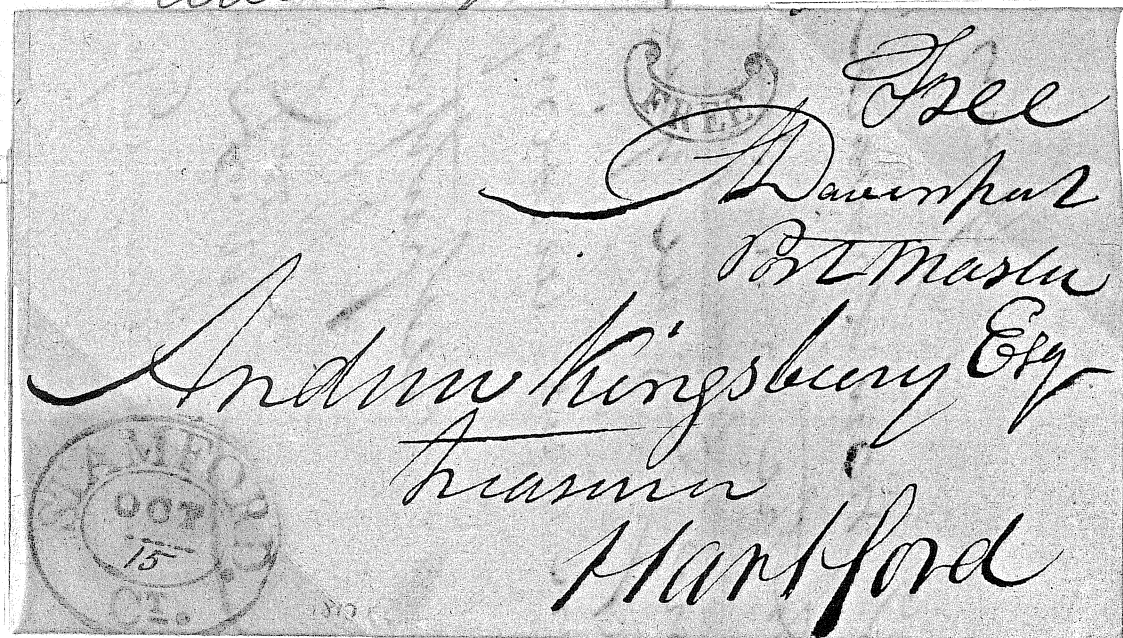 FREE
Free
Davenport
Post Master
Andrew Kingsbury Esq
Treasurer
Hartford
STAMFORD.
OCT
15
CT.